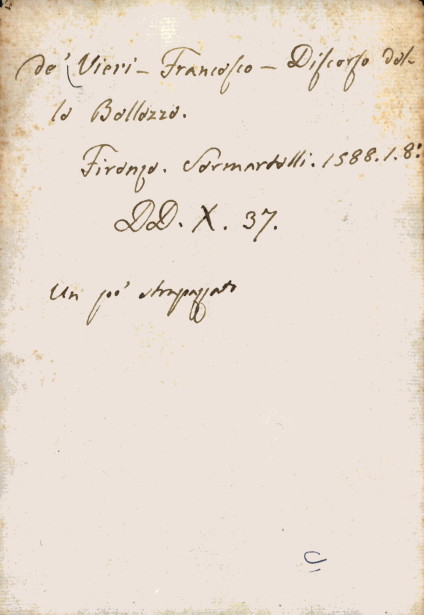 de' Vieri - Francesco - Discorso del-
le Bellezze.
Firenze. Sermartelli. 1588. 1. 8:
DD. X. 37.
Un po' strapazzato
C